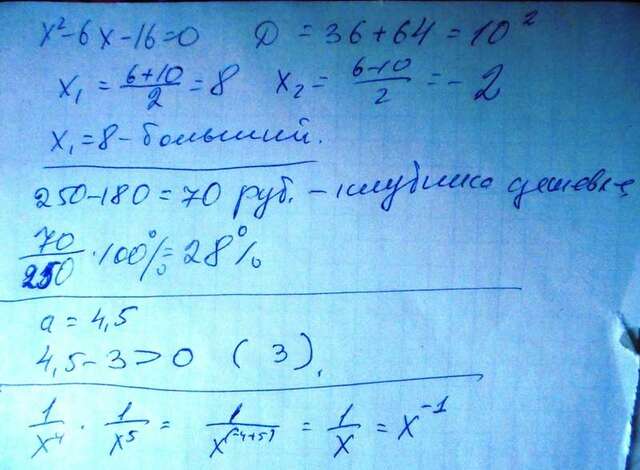 x²-6x-16=0 D = 36+64=10²
x₁ = (6+10)/2 = 8 x₂ = (6-10)/2 = -2
x₁=8 - больший.
250-180=70 руб. - клубника дешевле
70/250 · 100% = 28%
a = 4,5
4,5-3>0 (3).
1/x⁴ · 1/x⁵ = 1/x^(-4+5) = 1/x = x⁻¹